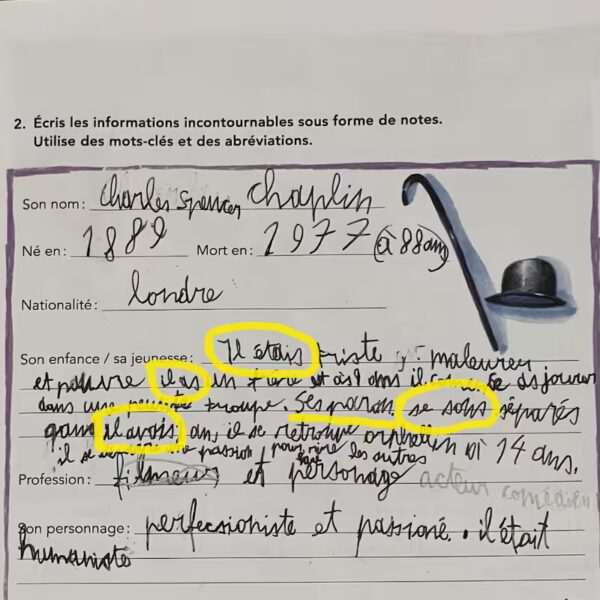 2. Écris les informations incontournables sous forme de notes.
Utilise des mots-clés et des abréviations.
Son nom : Charles Spencer Chaplin
Né en : 1889 Mort en : 1977 (à 88 ans)
Nationalité : londre
Son enfance / sa jeunesse : Il étais triste, maleureu
et pauvre il as un frère et à 9 ans il comence as jouer
dans une troupe. Ses paran se sons séparés
il avois an, il se retrouve orphelin à 14 ans.
il se passion pour rire les autres
Profession : filmeur et personage acteur comédien
Son personnage : perfecsioniste et passioné. il était
humaniste